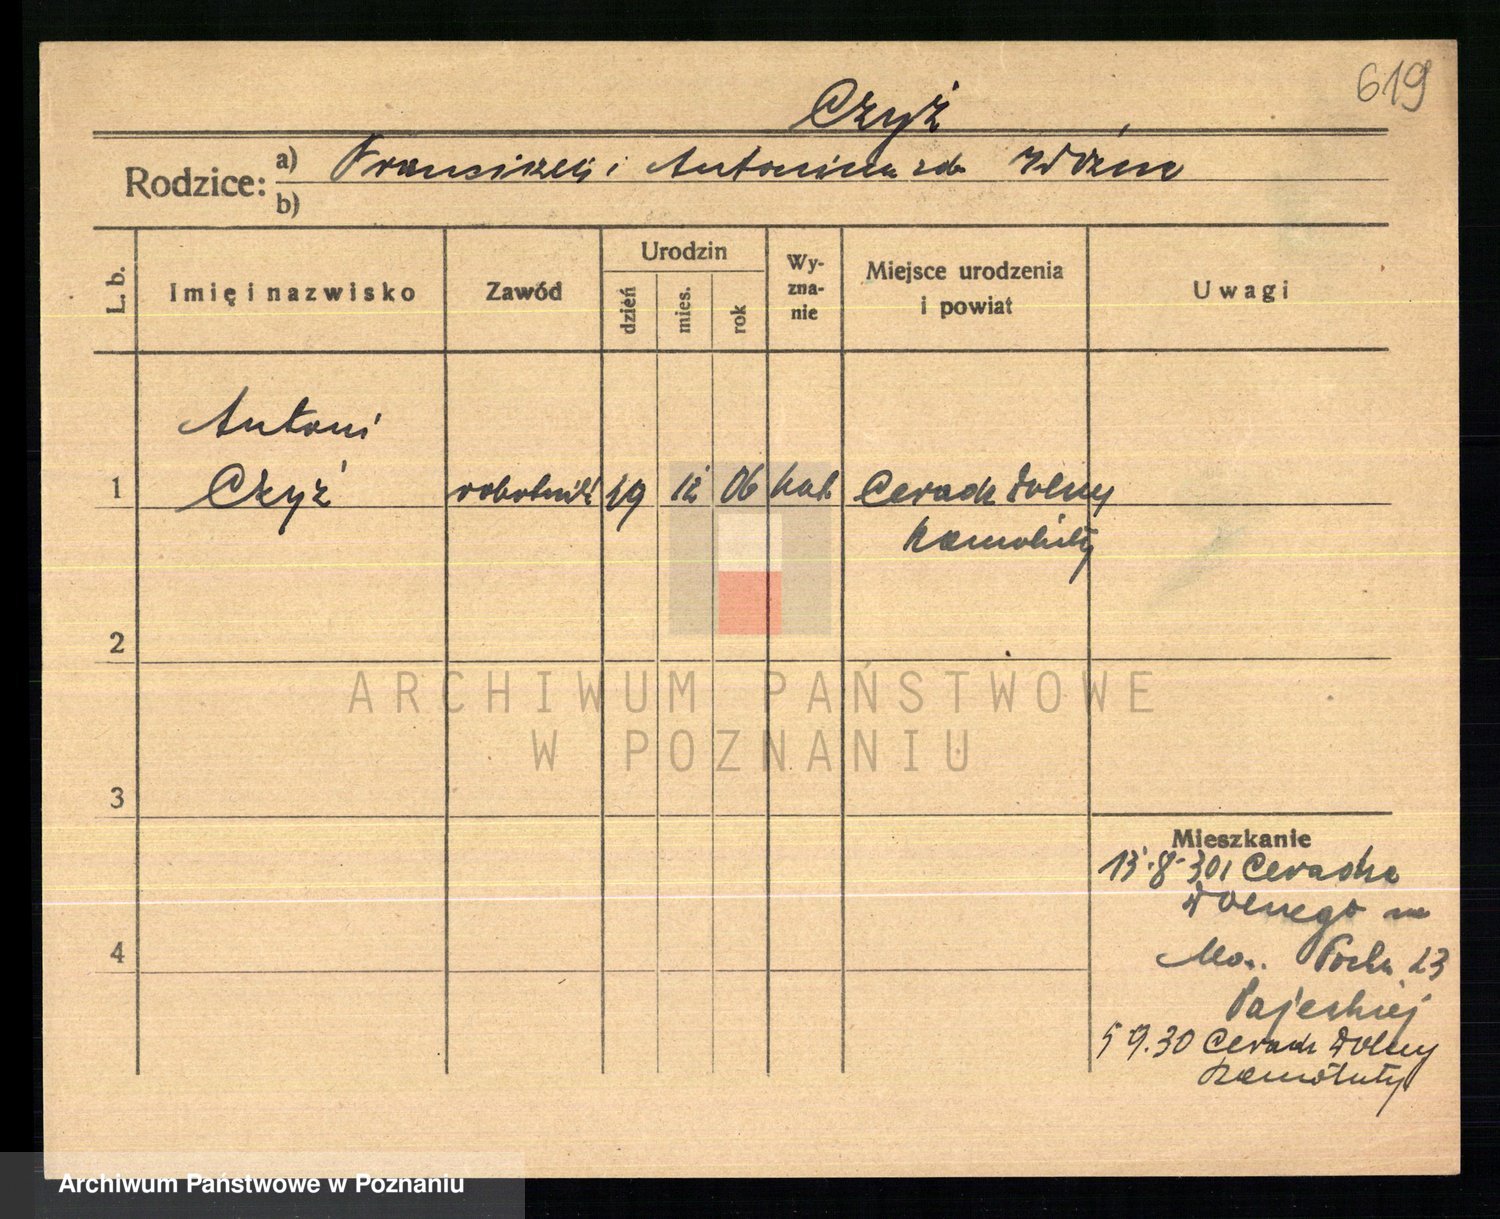 619
Czyż
Rodzice: a) Franciszek i Antonina zd.
b)
L. b.
Imię i nazwisko
Zawód
Urodzin
dzień
mies.
rok
Wy-
zna-
nie
Miejsce urodzenia
i powiat
Uwagi
Antoni
1 Czyż robotnik 19 12 06 kat. Ceradz Dolny
Szamotuły
2
3
4
Mieszkanie
13.8.30 Ceradza
Dolnego na
23
5 9.30 Ceradz Dolny
Szamotuły
ARCHIWUM PAŃSTWOWE
W POZNANIU
Archiwum Państwowe w Poznaniu